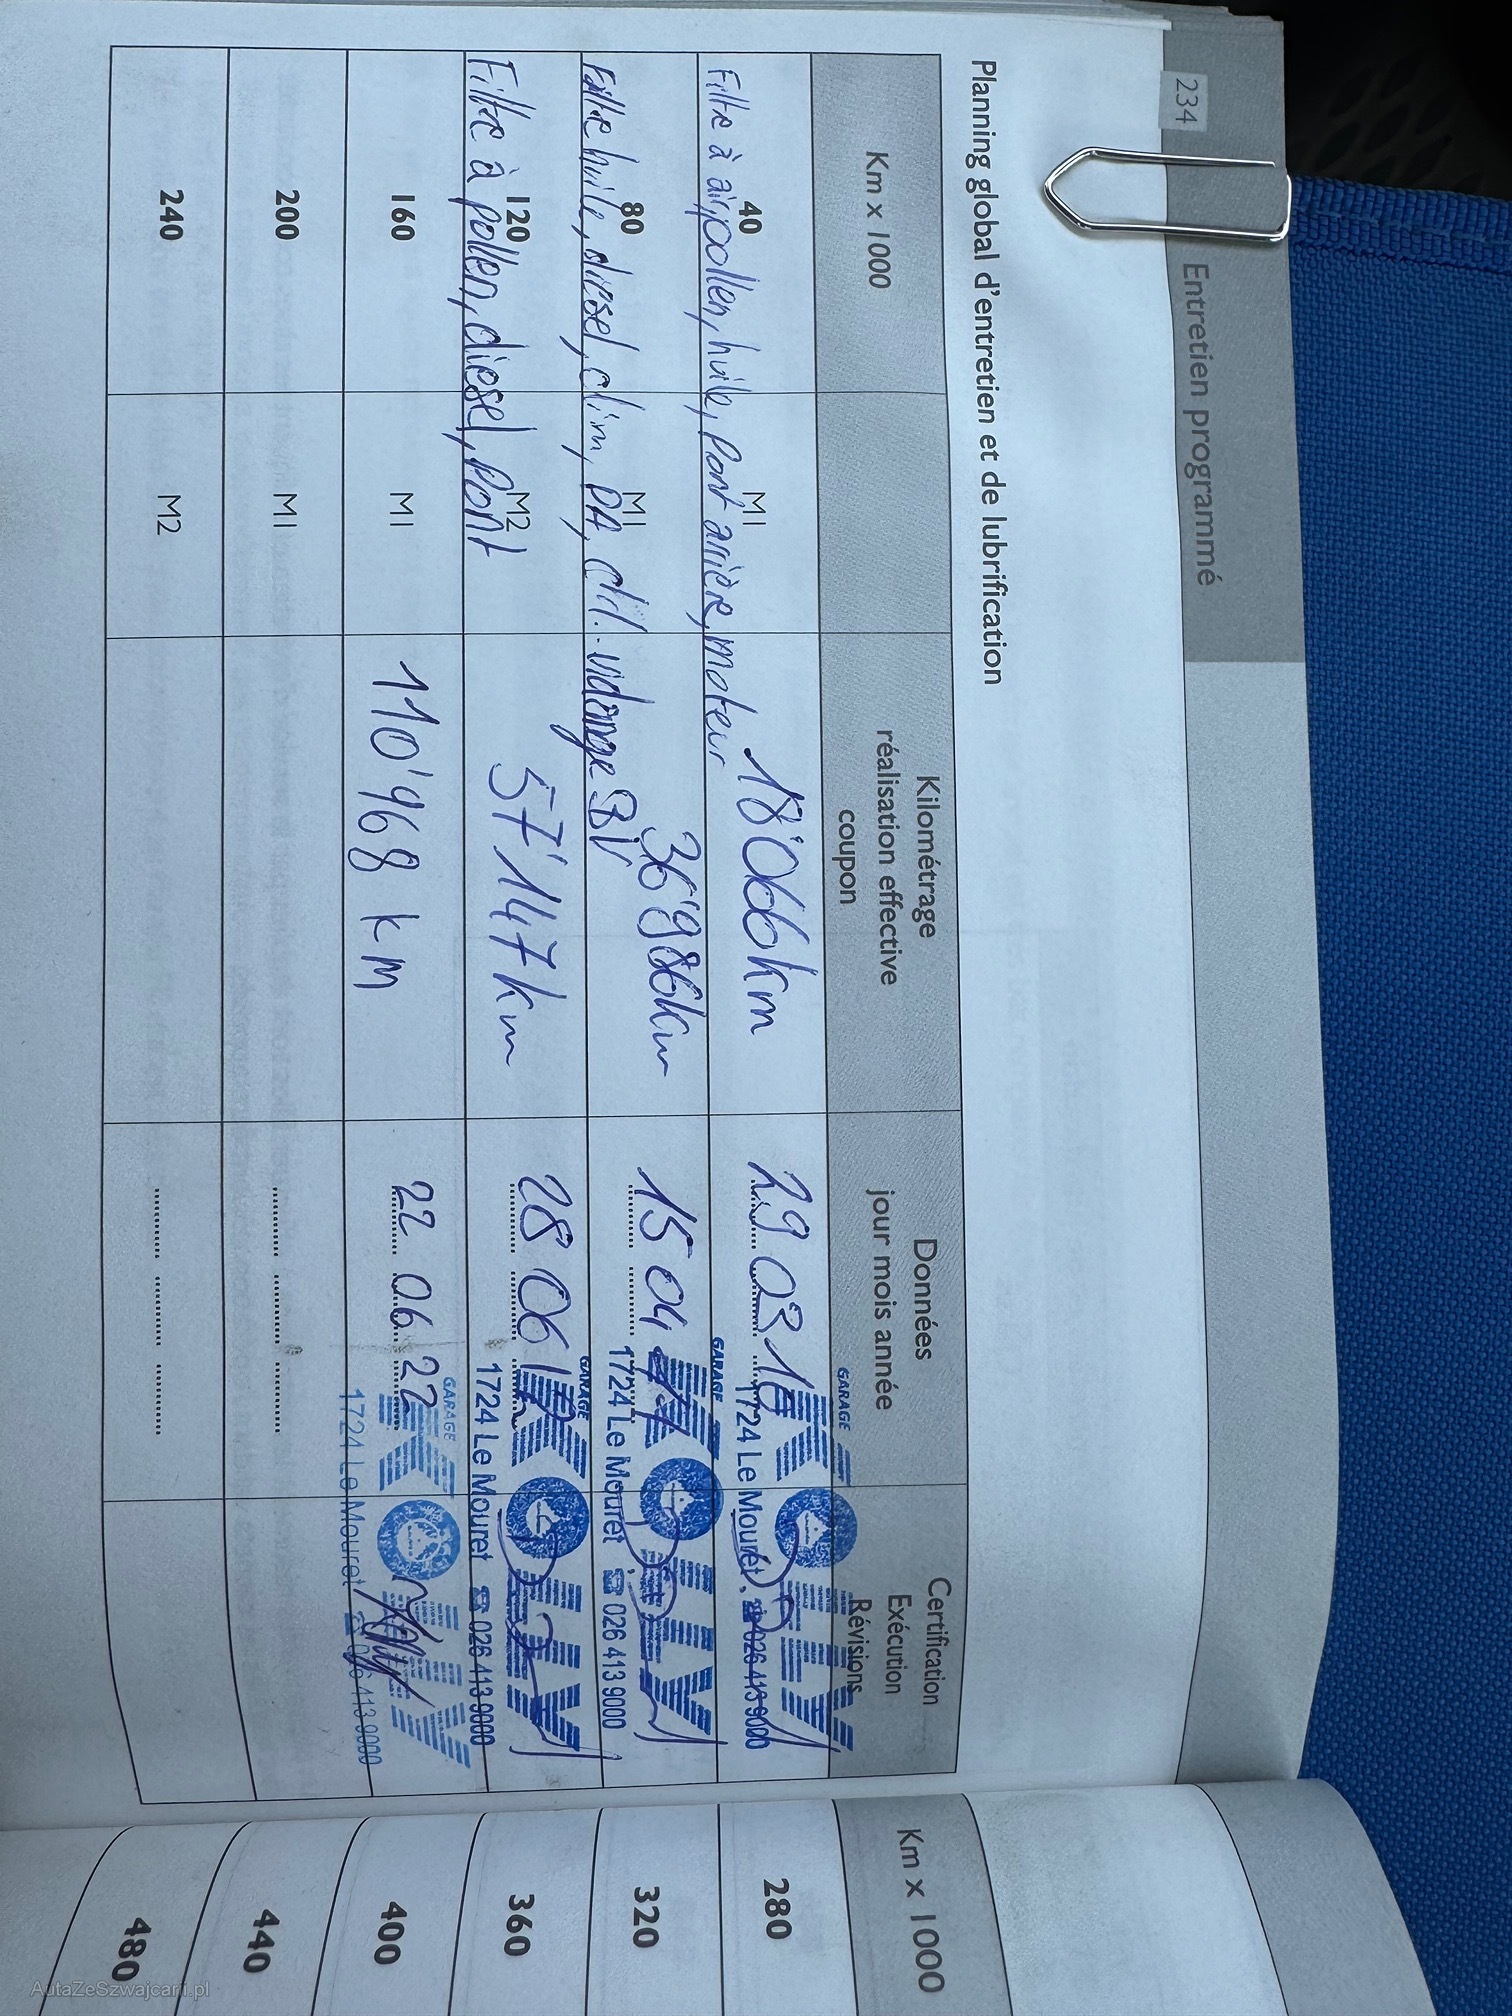 234 Entretien programmé
Planning global d'entretien et de lubrification
Km x 1000
Kilométrage
réalisation effective
coupon
Données
jour mois année
Certification
Exécution
Révisions
40 M1 18'066km 29 03 16
Filtre à air, pollen, huile, pont arrière, moteur
GARAGE
1724 Le Mouret. ☎ 026 413 9000
80 M1 36'986km 15 04 17
Filtre huile, diesel, clim, PA, vidange BV
GARAGE
1724 Le Mouret ☎ 026 413 9000
120 M2 57'147km 28 06
Filtre à pollen, diesel, pont
GARAGE
1724 Le Mouret ☎ 026 413 9000
160 M1 110'968 km 22 06 22
GARAGE
1724 Le Mouret ☎ 026 413 9000
200 M1
240 M2
Km x 1000
280
320
360
400
440
480
AutaZeSzwajcarii.pl